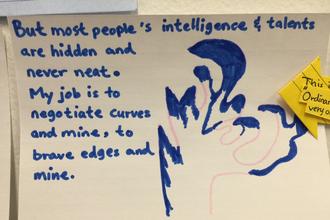 But most people's intelligence & talents
are hidden and
never neat.
My job is to
negotiate curves
and mine, to
brave edges and
mine.
This
"Ordinar
very o